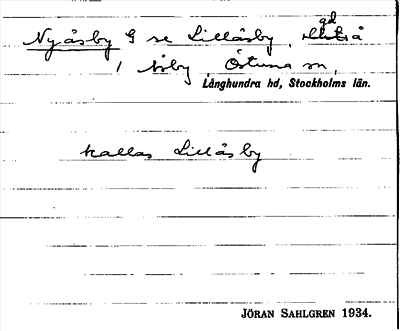 Nyåsby G se Lillåsby, gd
i Åsby, Östuna sn,
Långhundra hd, Stockholms län.
kallas Lillåsby
JÖRAN SAHLGREN 1934.